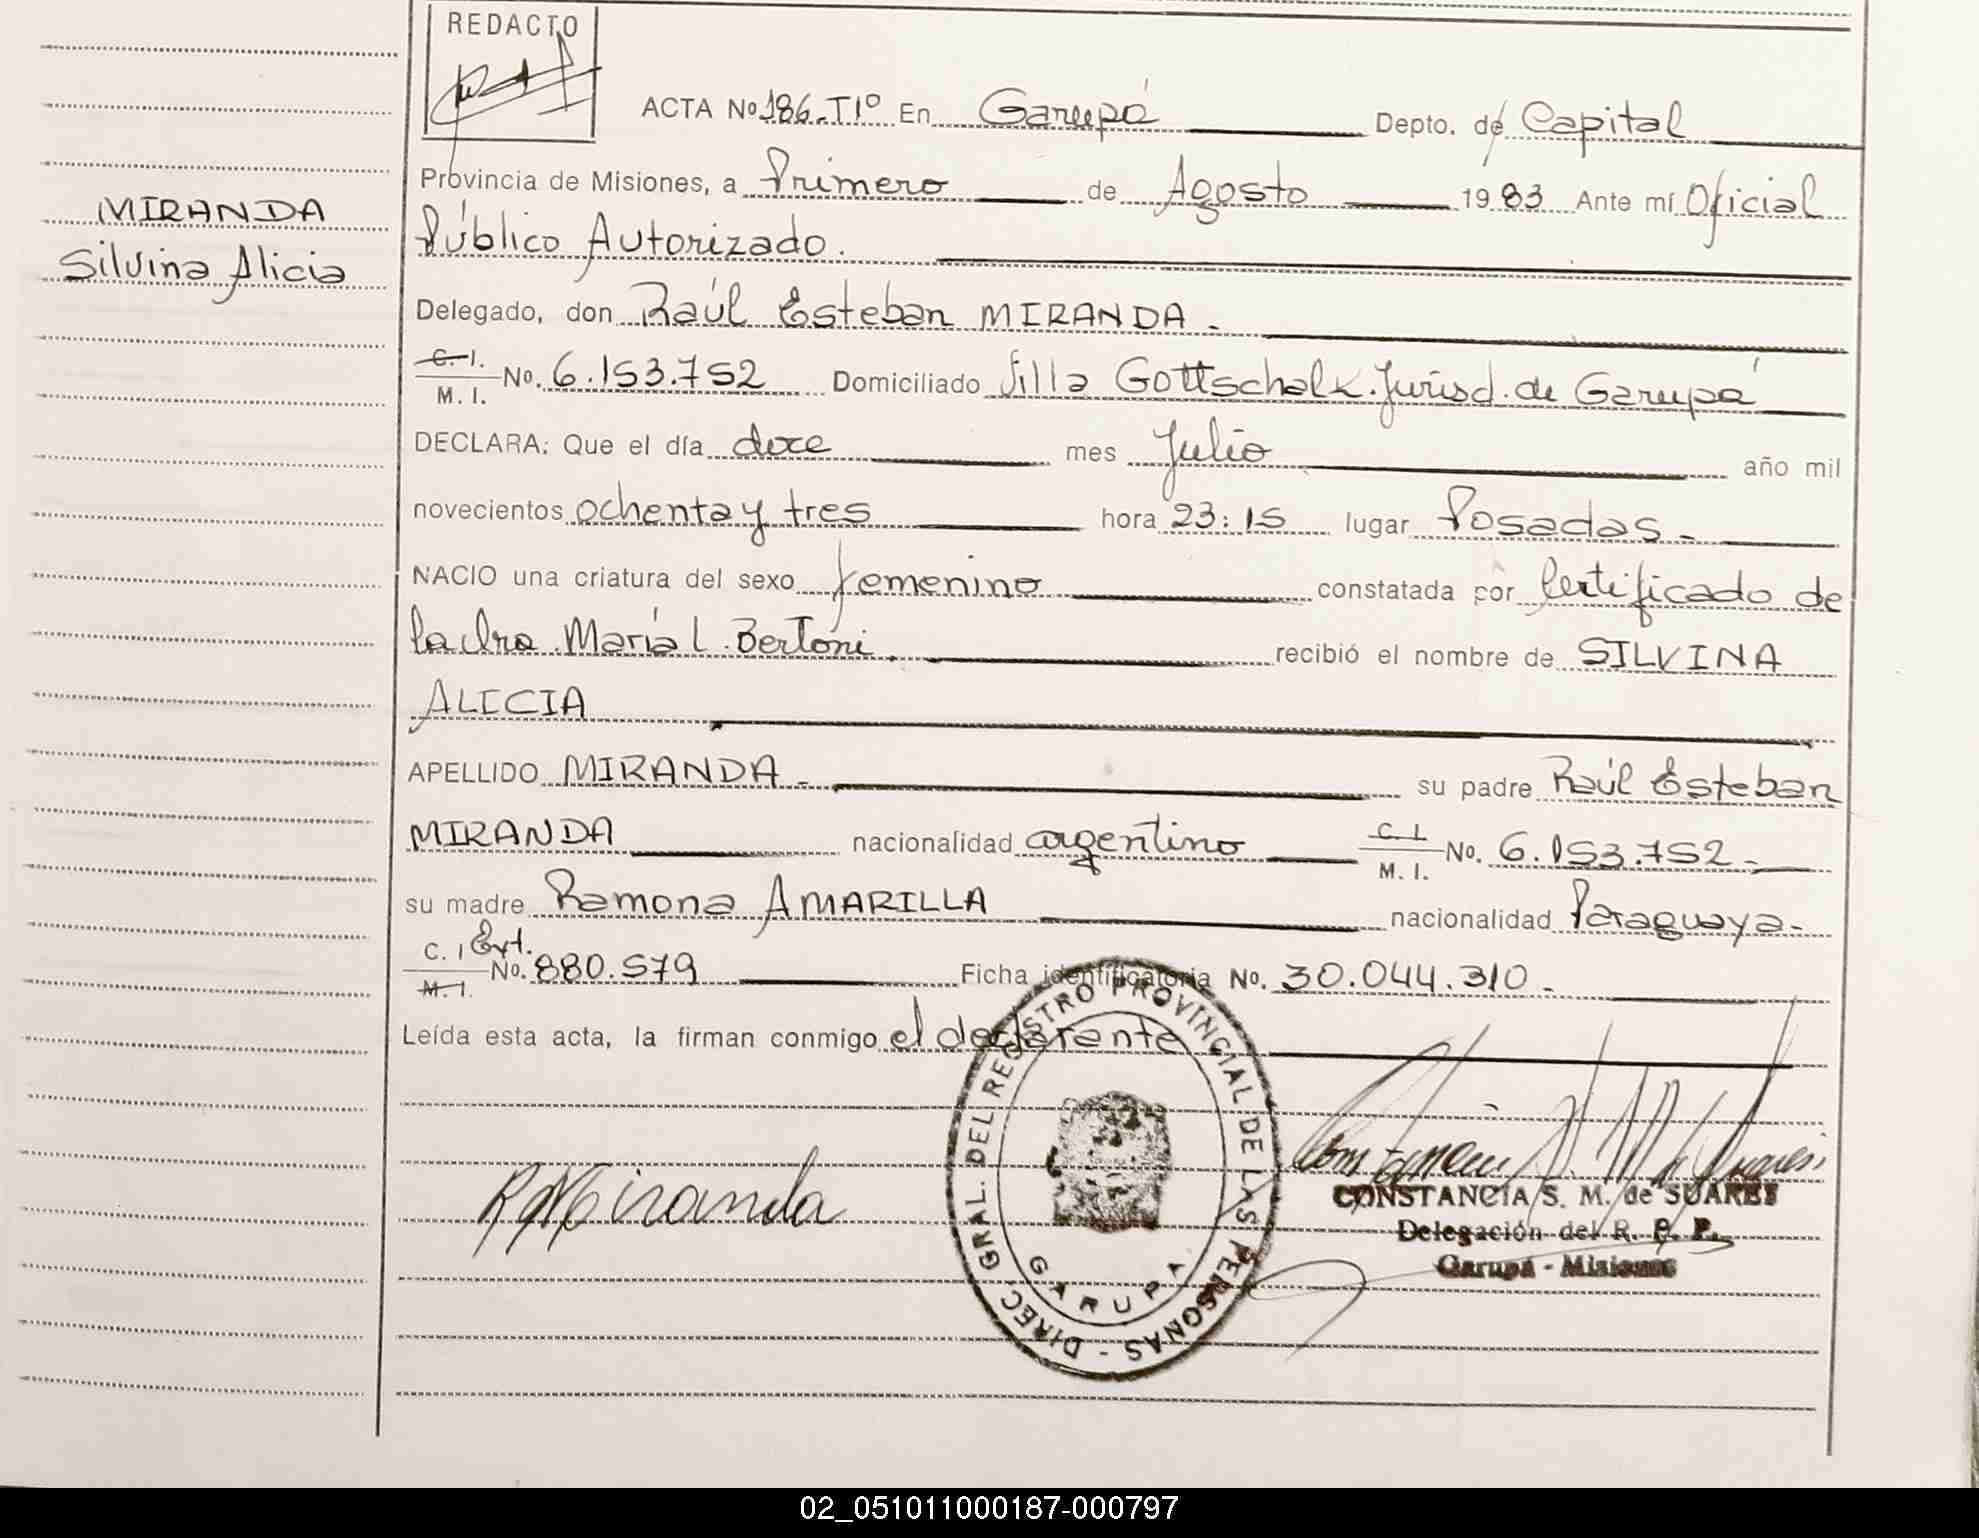 REDACTO
ACTA Nº 186.-Tº Iº En Garupá Depto. de Capital
Provincia de Misiones, a Primero de Agosto 1983 Ante mí Oficial
Público Autorizado.
MIRANDA
Silvina Alicia
Delegado, don Raúl Esteban MIRANDA.-
C. I.
M. I. No. 6.153.752 Domiciliado Villa Gottschalk.Jurisd. de Garupá
DECLARA: Que el día doce mes Julio año mil
novecientos ochenta y tres hora 23:15 lugar Posadas.-
NACIO una criatura del sexo femenino constatada por Certificado de
la Dra. María L. Bertoni. recibió el nombre de SILVINA
ALICIA
APELLIDO MIRANDA.- su padre Raúl Esteban
MIRANDA nacionalidad argentino C. I.
M. I. No. 6.153.752.-
su madre Ramona AMARILLA nacionalidad Paraguaya.-
C. I. Ext.
M. I. No. 880.579 Ficha identificatoria No. 30.044.310.-
Leída esta acta, la firman conmigo el declarante
R Miranda
DIREC. GRAL. DEL REGISTRO PROVINCIAL DE LAS PERSONAS -
GARUPA
CONSTANCIA S. M. de SUARES
Delegación del R. P. P.
Garupá - Misiones
02_051011000187-000797